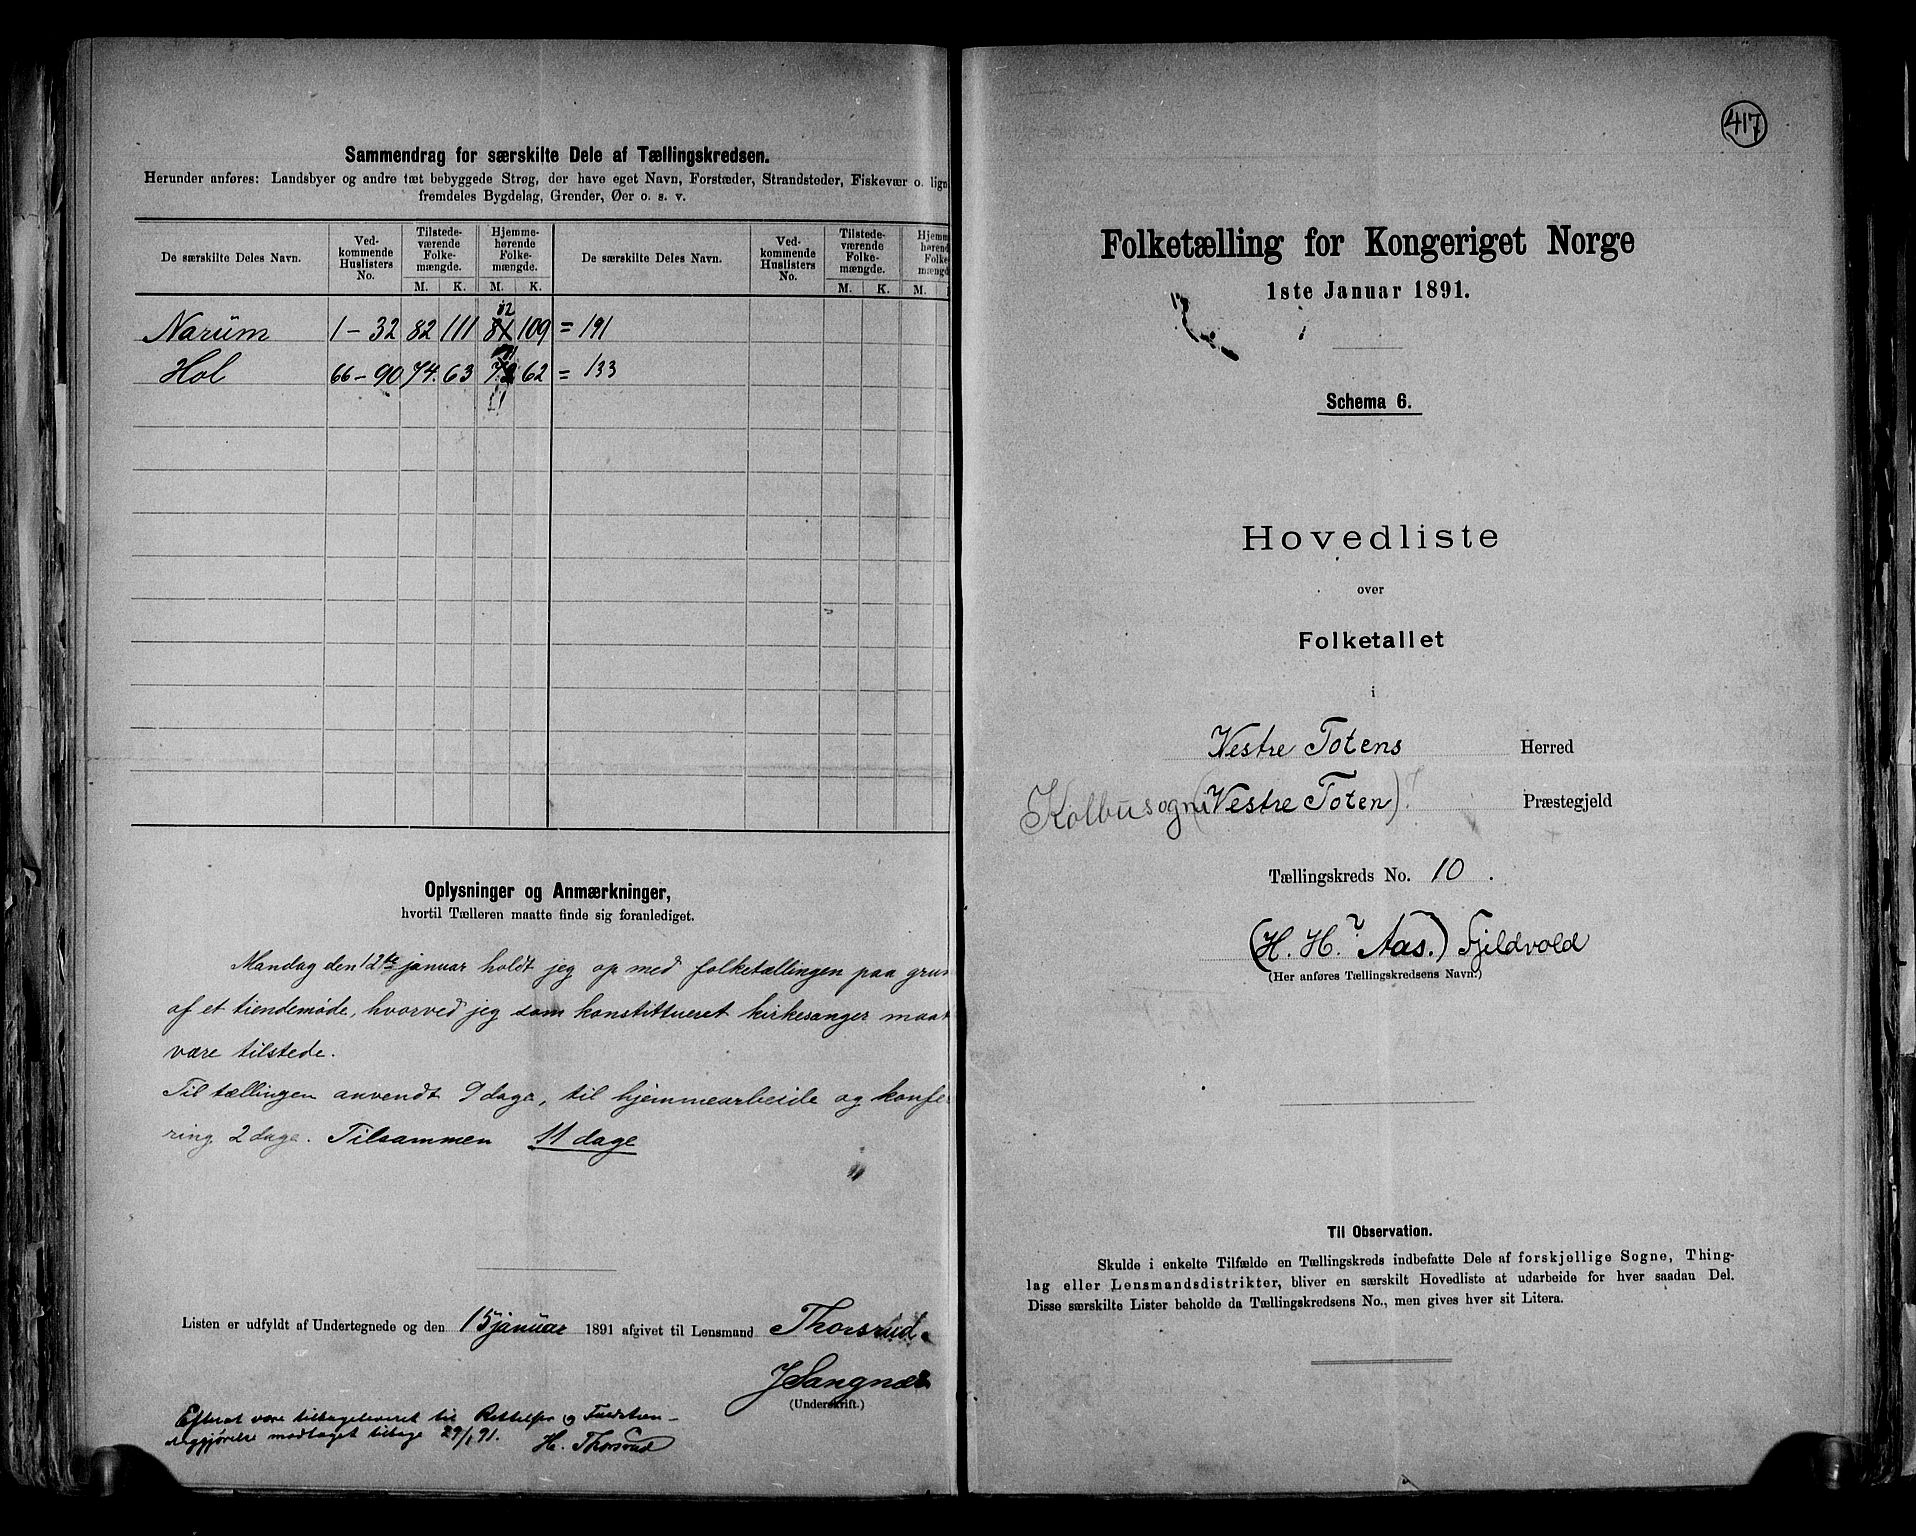 Sammendrag for særskilte Dele af Tællingskredsen.
Herunder anføres: Landsbyer og andre tæt bebyggede Strøg, der have eget Navn, Forstæder, Strandsteder, Fiskevær o. lign
fremdeles Bygdelag, Grender, Øer o. s. v.
De særskilte Deles Navn. Ved-kommende Huslisters No. Tilstede-værende Folke-mængde. Hjemme-hørende Folke-mængde. De særskilte Deles Navn. Ved-kommende Huslisters No. Tilstede-værende Folke-mængde. Hjemm hørend Folke mængd
M. K. M. K. M. K. M.
82
Narum 1 - 32 82 111 81 109 = 191
Hol 66 - 90 74. 63 62 = 133
Oplysninger og Anmærkninger,
hvortil Tælleren maatte finde sig foranlediget.
Mandag den 12te januar holdt jeg op med folketællingen paa grun
af et tiendemøde, hvorved jeg som konstittueret kirkesanger maat
være tilstede.
Til tællingen anvendt 9 dage, til hjemmearbeide og konfe
ring 2 dage. Tilsammen 11 dage
Listen er udfyldt af Undertegnede og den 15 januar 1891 afgivet til Lensmand Thorsrud.
J Sangnæs
(Underskrift.)
Efterat være tilbageleveret til
modtaget tilbage 29/1 91. H. Thorsrud
417
Folketælling for Kongeriget Norge
1ste Januar 1891.
Schema 6.
Hovedliste
over
Folketallet
i
Vestre Totens Herred
Kolbu sogn (Vestre Toten)? Præstegjeld
Tællingskreds No. 10.
(H. H. ? Aas.) Fjeldvold
(Her anføres Tællingskredsens Navn.)
Til Observation.
Skulde i enkelte Tilfælde en Tællingskreds indbefatte Dele af forskjellige Sogne, Thing-
lag eller Lensmandsdistrikter, bliver en særskilt Hovedliste at udarbeide for hver saadan Del.
Disse særskilte Lister beholde da Tællingskredsens No., men gives hver sit Litera.